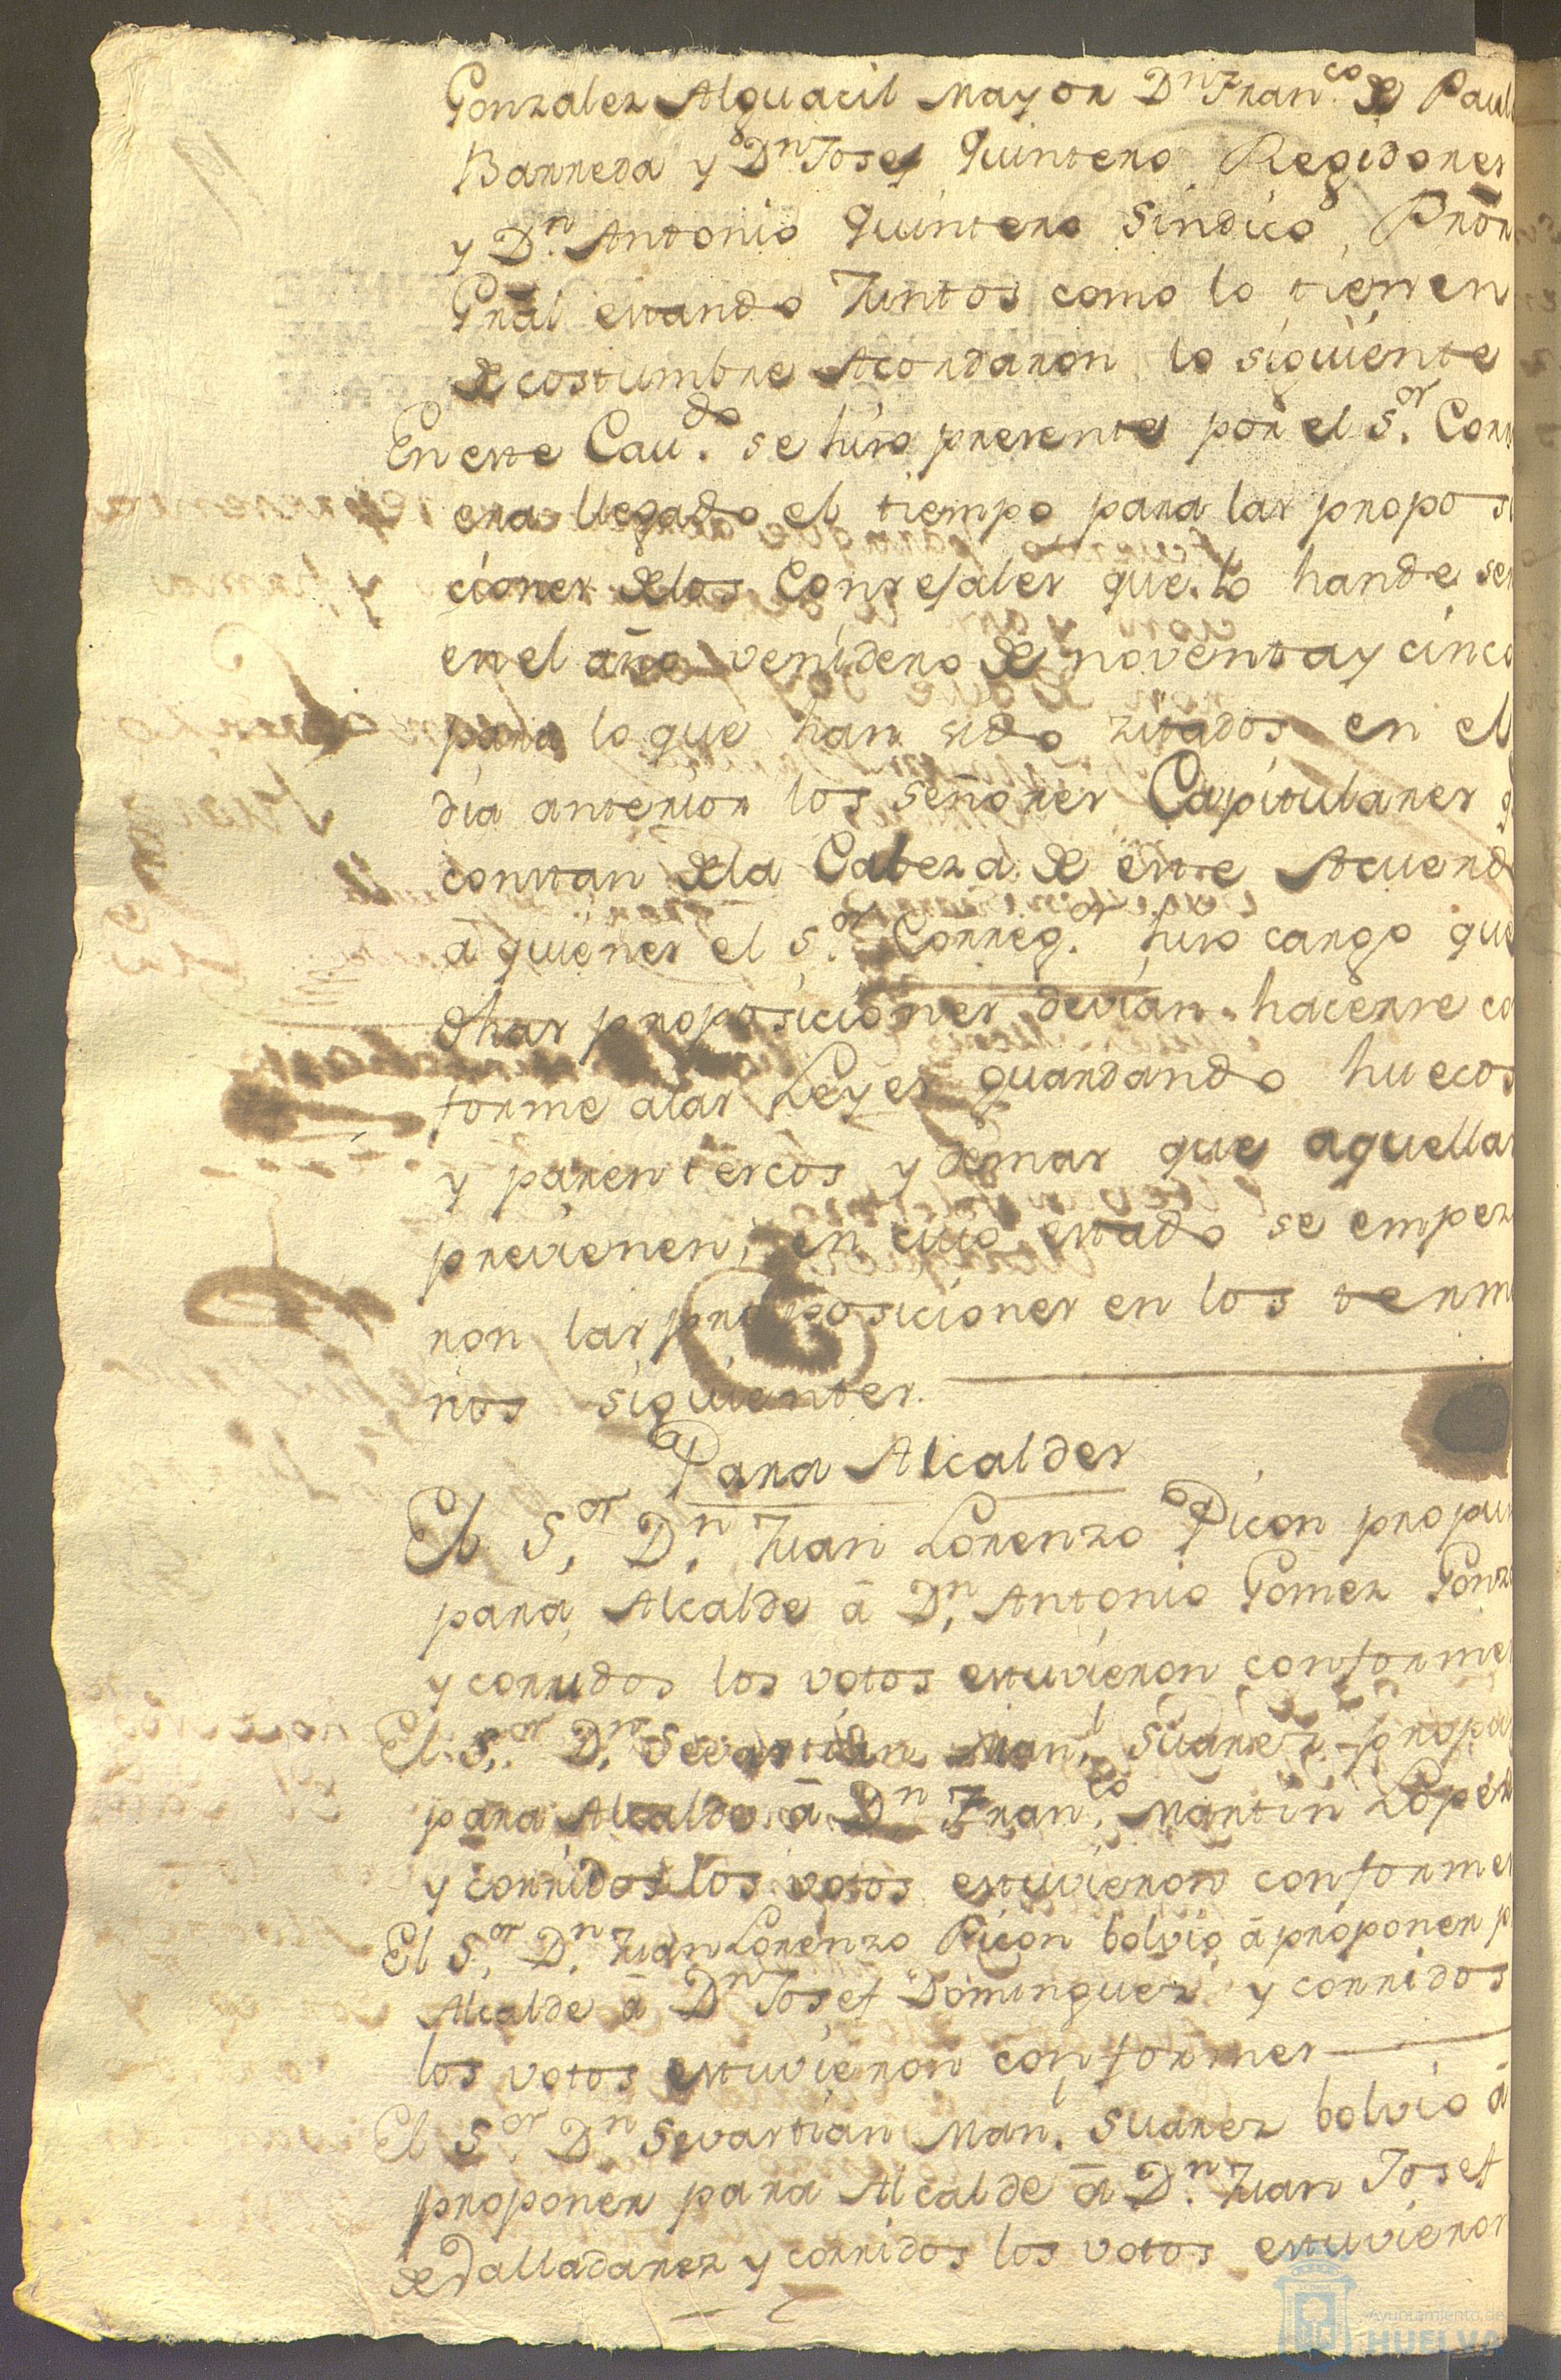 Gonzalez Alguacil mayor Dn Franco de Paul
Barreda y Dn Josef Quintero Regidores
y Dn. Antonio Quintero Sindico Pror
Gral estando Juntos como lo tienen
de costumbre Acordaron lo siguiente
En este Cavdo. se hiso presente por el Sor. Corr
era llegado el tiempo para las proposi
ciones de los Consejales que lo han de ser
en el año venidero de noventa y cinco
para lo que han sido zitados en el
dia anterior los señores Capitulares q
constan de la Cabeza de este Acuerdo
á quienes el Sor. Correg.or hiso cargo que
dhas proposiciones devian hacerse co
forme a las Leyes guardando huecos
y parentescos y demas que aquellas
previenen, en cuio estado se empeza
ron las proposiciones en los termi
nos siguientes.
Para Alcaldes
El Sor. Dn. Juan Lorenzo Picon propus
para Alcalde á Dn. Antonio Gomez Gonz
y corridos los votos estuvieron conformes
El Sor. Dn. Sevastian Manl. Suarez propu
para Alcalde á Dn Franco. Martin Lopez
y corridos los votos estuvieron conformes
El Sor. Dn. Juan Lorenzo Picon bolvió á proponer p
Alcalde á Dn Josef Dominguez y corridos
los votos estuvieron conformes
El Sor. Dn Sevastian Manl. Suarez bolvió á
proponer para Alcalde á Dn. Juan Josef
de Valladarez y corridos los votos estuvieron
Ayuntamiento de
HUELVA